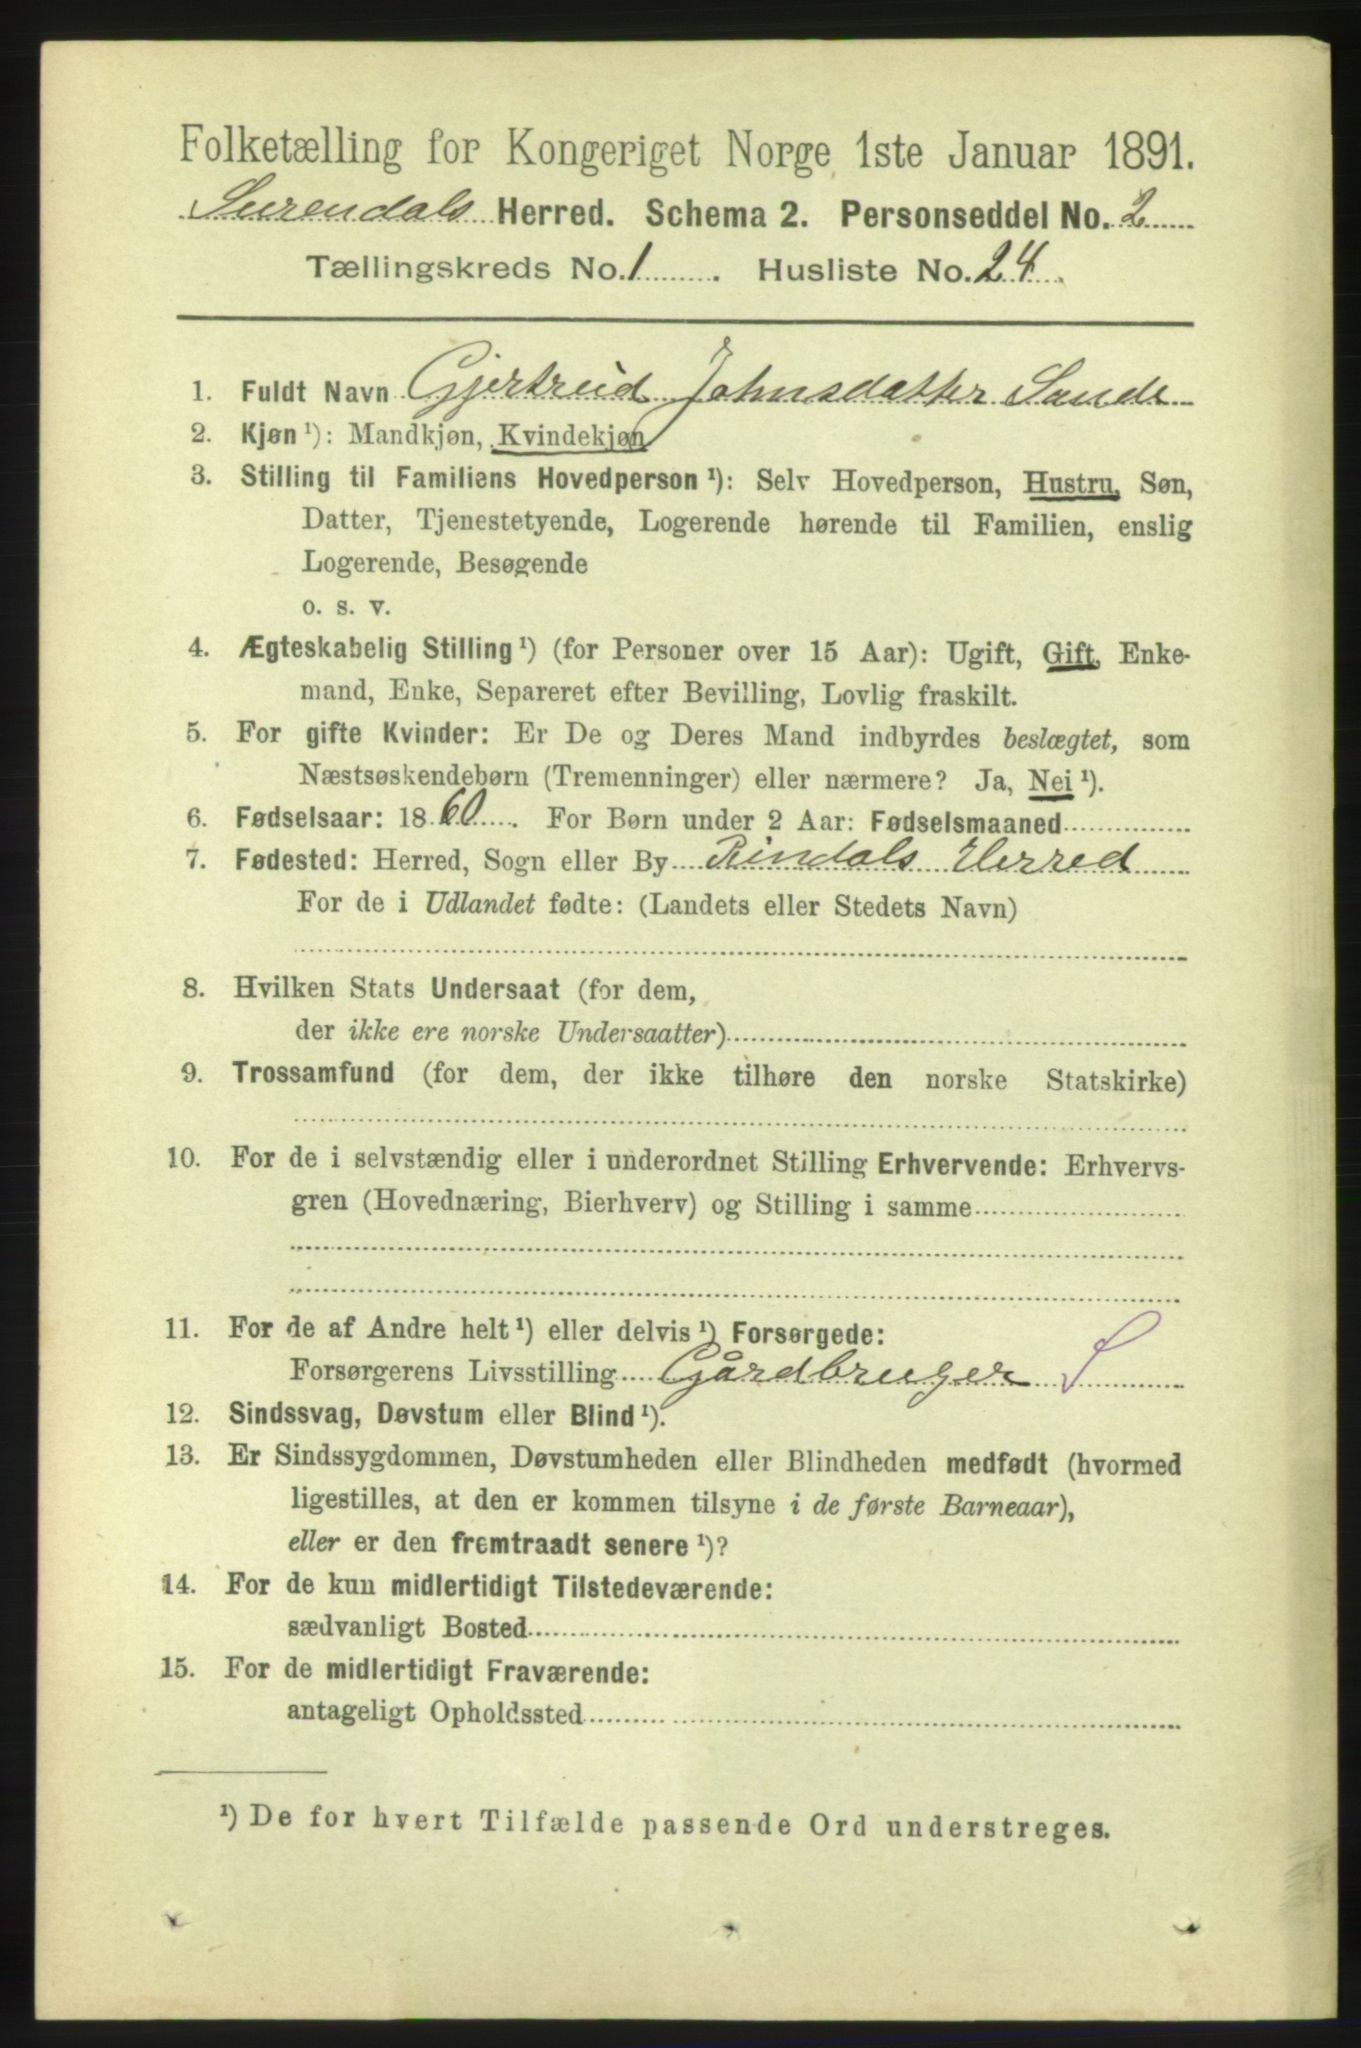 Folketælling for Kongeriget Norge 1ste Januar 1891.
Surendals Herred. Schema 2. Personseddel No. 2
Tællingskreds No. 1. Husliste No. 24.
1. Fuldt Navn Gjertrud Johnsdatter Sande
2. Kjøn ¹): Mandkjøn, Kvindekjøn
3. Stilling til Familiens Hovedperson ¹): Selv Hovedperson, Hustru, Søn,
Datter, Tjenestetyende, Logerende hørende til Familien, enslig
Logerende, Besøgende
o. s. v.
4. Ægteskabelig Stilling ¹) (for Personer over 15 Aar): Ugift, Gift, Enke-
mand, Enke, Separeret efter Bevilling, Lovlig fraskilt.
5. For gifte Kvinder: Er De og Deres Mand indbyrdes beslægtet, som
Næstsøskendebørn (Tremenninger) eller nærmere? Ja, Nei ¹).
6. Fødselsaar: 1860. For Børn under 2 Aar: Fødselsmaaned
7. Fødested: Herred, Sogn eller By Rindals Herred
For de i Udlandet fødte: (Landets eller Stedets Navn)
8. Hvilken Stats Undersaat (for dem,
der ikke ere norske Undersaatter)
9. Trossamfund (for dem, der ikke tilhøre den norske Statskirke)
10. For de i selvstændig eller i underordnet Stilling Erhvervende: Erhvervs-
gren (Hovednæring, Bierhverv) og Stilling i samme
11. For de af Andre helt ¹) eller delvis ¹) Forsørgede:
Forsørgerens Livsstilling Gårdbruger
12. Sindssvag, Døvstum eller Blind ¹).
13. Er Sindssygdommen, Døvstumheden eller Blindheden medfødt (hvormed
ligestilles, at den er kommen tilsyne i de første Barneaar),
eller er den fremtraadt senere ¹)?
14. For de kun midlertidigt Tilstedeværende:
sædvanligt Bosted
15. For de midlertidigt Fraværende:
antageligt Opholdssted
¹) De for hvert Tilfælde passende Ord understreges.